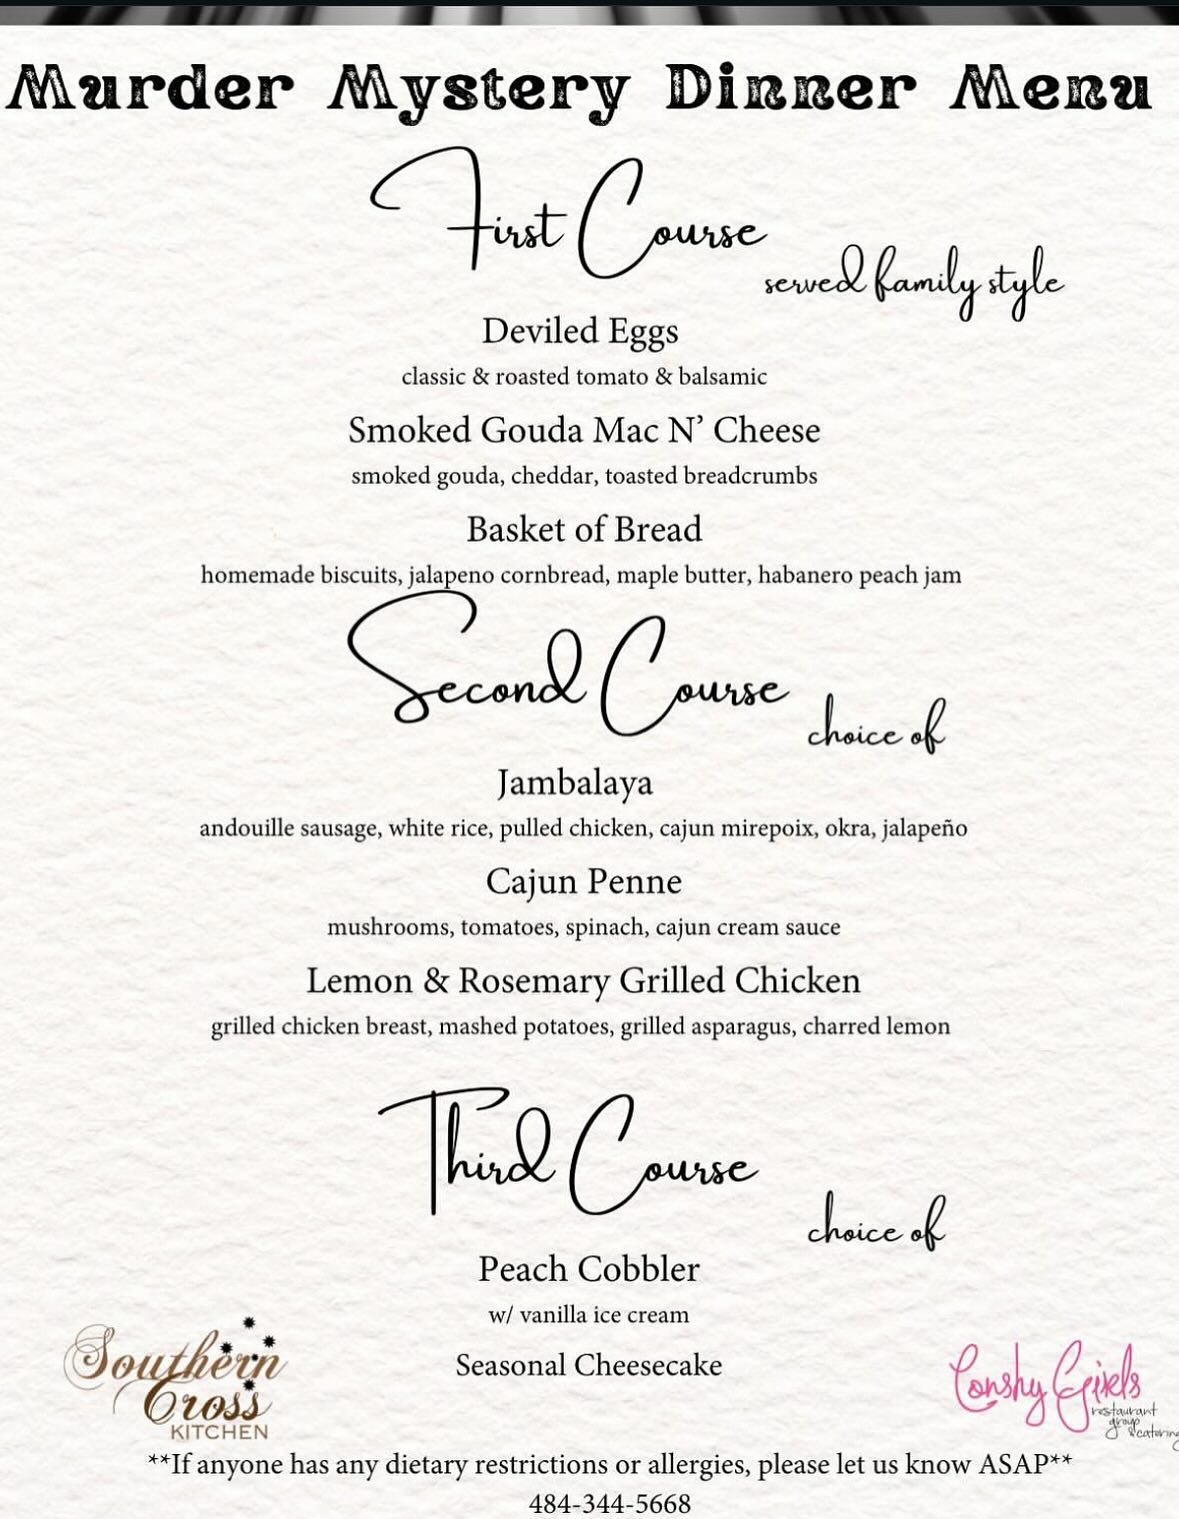 Murder Mystery Dinner Menu
First Course
served family style
Deviled Eggs
classic & roasted tomato & balsamic
Smoked Gouda Mac N’ Cheese
smoked gouda, cheddar, toasted breadcrumbs
Basket of Bread
homemade biscuits, jalapeno cornbread, maple butter, habanero peach jam
Second Course
choice of
Jambalaya
andouille sausage, white rice, pulled chicken, cajun mirepoix, okra, jalapeño
Cajun Penne
mushrooms, tomatoes, spinach, cajun cream sauce
Lemon & Rosemary Grilled Chicken
grilled chicken breast, mashed potatoes, grilled asparagus, charred lemon
Third Course
choice of
Peach Cobbler
w/ vanilla ice cream
Seasonal Cheesecake
Southern
Cross
KITCHEN
Conshy Girls
restaurant
group
& catering
**If anyone has any dietary restrictions or allergies, please let us know ASAP**
484-344-5668